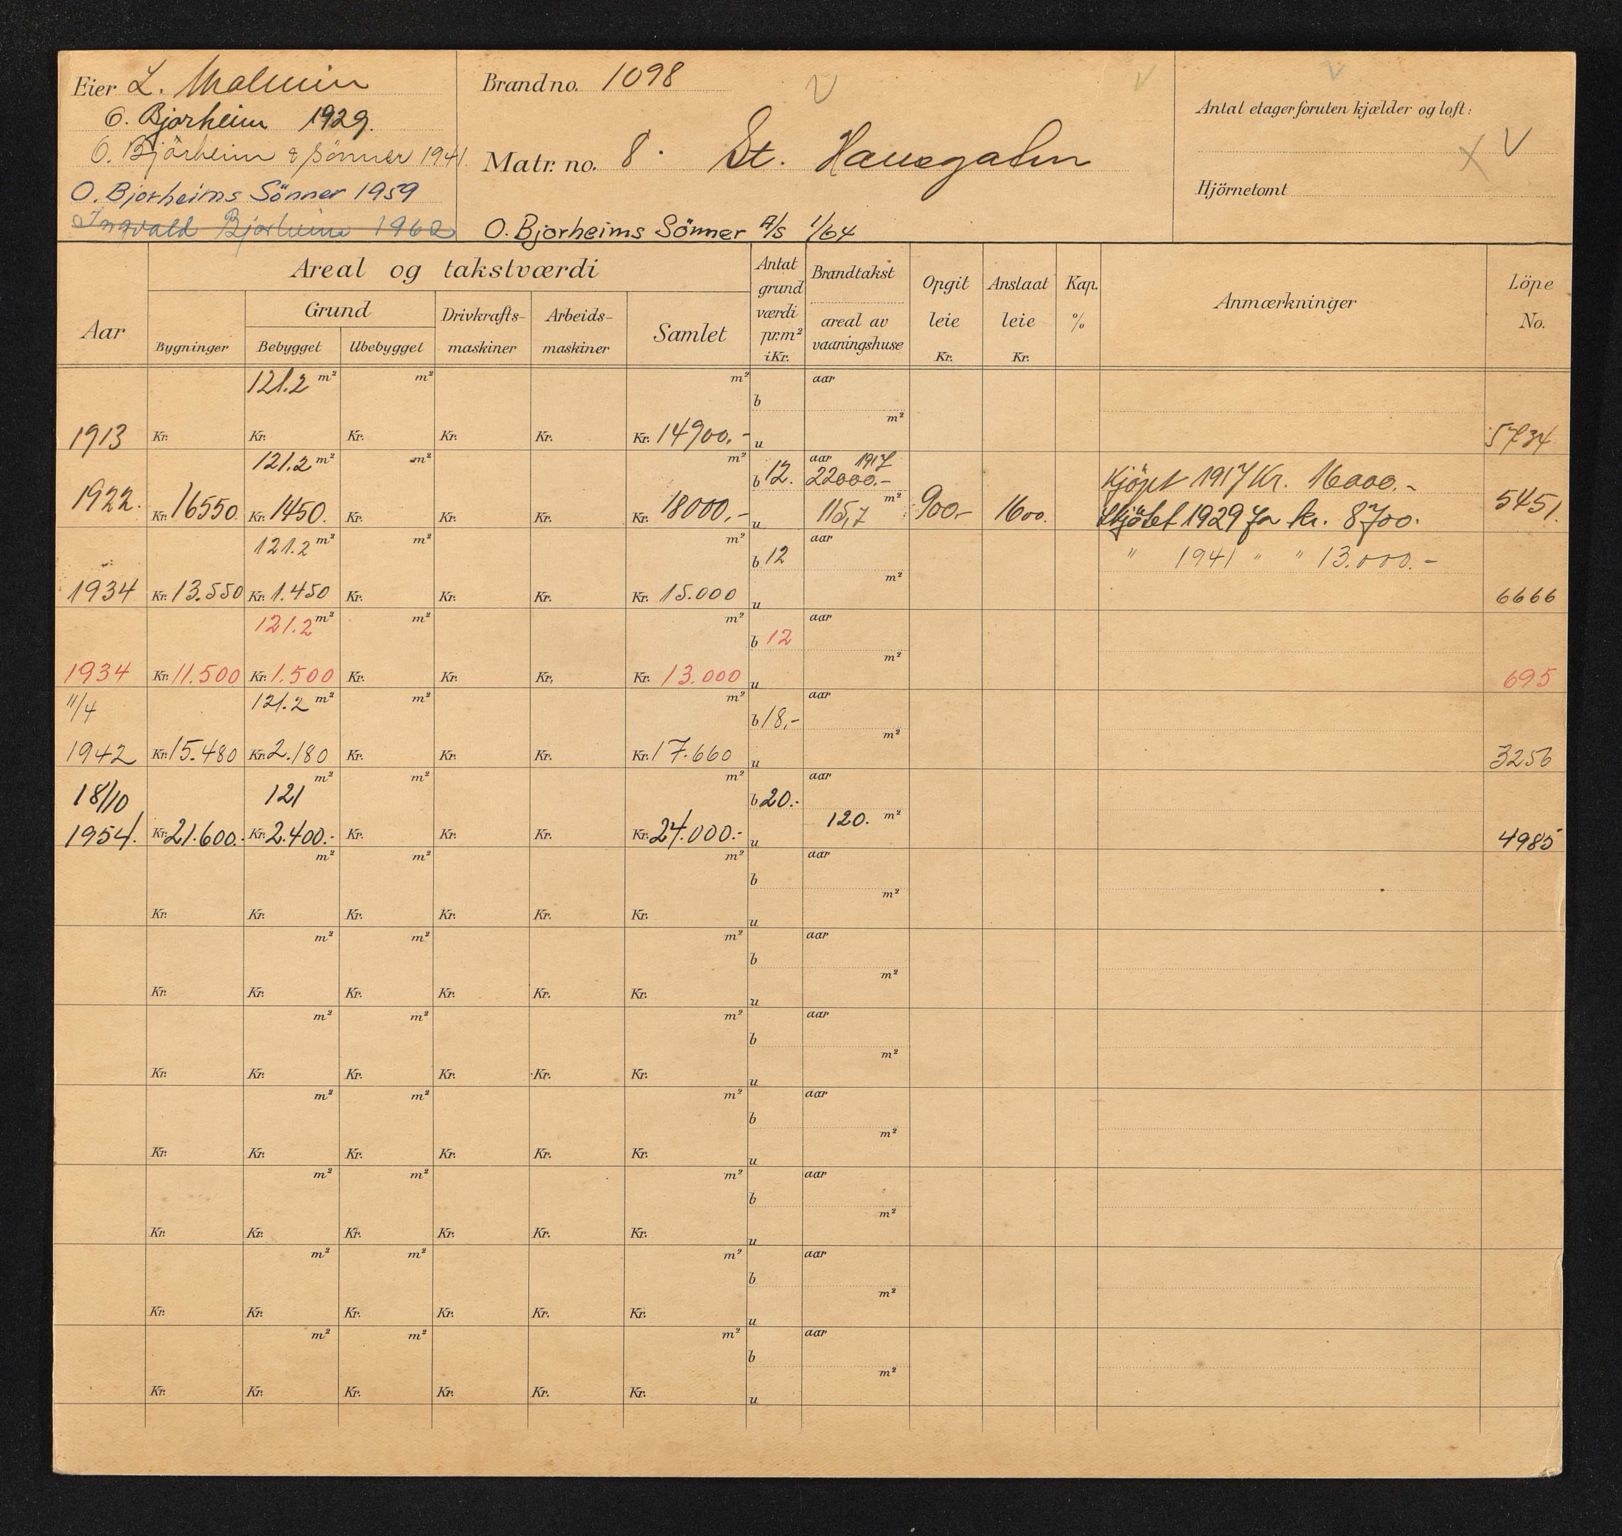 Eier L. Malmin
O. Bjorheim 1929.
O. Bjorheim & Sønner 1941
O. Bjorheims Sönner 1959
Ingvald Bjorheim 1962
Brand no. 1098
Matr. no. 8. St. Hansgaten
O. Bjorheims Sönner A/S 1/64
Antal etager foruten kjælder og loft:
X V
Hjörnetomt
Aar
Areal og takstværdi
Bygninger
Grund
Bebygget Ubebygget
Drivkrafts-
maskiner
Arbeids-
maskiner
Samlet
Antat
grund
værdi
pr. m²
i Kr.
Brandtakst
areal av
vaaningshuse
Opgit
leie
Kr.
Anslaat
leie
Kr.
Kap.
%
Anmærkninger
Löpe
No.
121.2 m² m² m² aar
b m²
1913 Kr. Kr. Kr. Kr. Kr. Kr. 14900.- u 5734
121.2 m² m² m² aar 1917
b 12. 22000.- Kjöpt 1917 Kr. 16000.-
1922. Kr. 16550. Kr. 1450. Kr. Kr. Kr. Kr. 18000,- u 115,7 m² 900.- 1600. Skjötet 1929 for kr. 8700. 5451.
121.2 m² m² m² aar
b 12 m² " 1941 " " 13.000.-
1934 Kr. 13.550 Kr. 1.450 Kr. Kr. Kr. Kr. 15.000 u 6666
121.2 m² m² m² aar
b 12 m²
1934 Kr. 11.500 Kr. 1.500 Kr. Kr. Kr. Kr. 13.000 u 695
11/4 121.2 m² m² m² aar
b 18,- m²
1942 Kr. 15.480 Kr. 2.180 Kr. Kr. Kr. Kr. 17.660 u 3256
m² m² m² aar
18/10 121 b 20.- 120. m²
1954. Kr. 21.600.- Kr. 2.400.- Kr. Kr. Kr. Kr. 24.000.- u 4985
m² m² m² aar
b m²
Kr. Kr. Kr. Kr. Kr. Kr. u
m² m² m² aar
b m²
Kr. Kr. Kr. Kr. Kr. Kr. u
m² m² m² aar
b m²
Kr. Kr. Kr. Kr. Kr. Kr. u
m² m² m² aar
b m²
Kr. Kr. Kr. Kr. Kr. Kr. u
m² m² m² aar
b m²
Kr. Kr. Kr. Kr. Kr. Kr. u
m² m² m² aar
b m²
Kr. Kr. Kr. Kr. Kr. Kr. u
m² m² m² aar
b m²
Kr. Kr. Kr. Kr. Kr. Kr. u